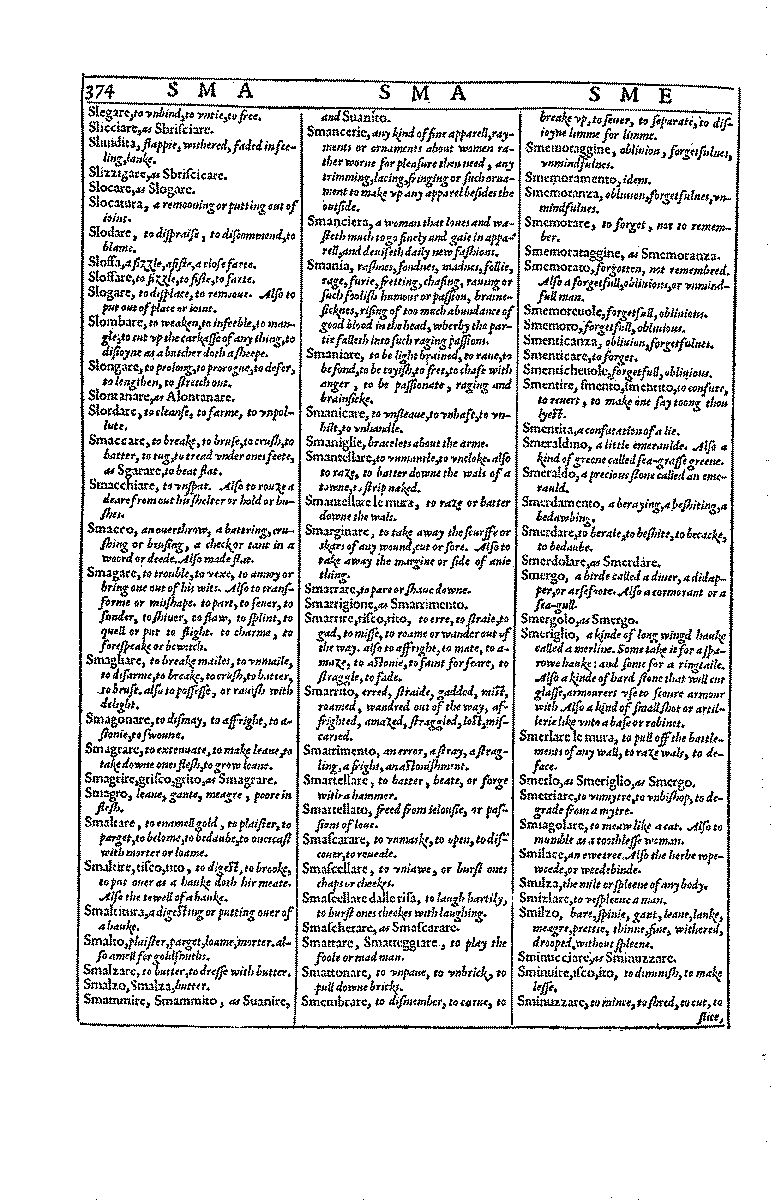 374 S M A S M A S M E
Slegare, to vnbind, to vntie, to free.
Slicciare, as Sbrisciare.
flappie, withered, faded in fee-
ling, lanke.
Slizzigare, as Sbriscicare.
Slocare, as Slogare.
Slocatura, a remoouing or putting out of
ioint.
Slodare, to dispraise, to discommend, to
blame.
Sloffa, a fizzle, a fiste, a close farte.
Sloffare, to fizzle, to fiste, to farte.
Slogare, to displace, to remoue. Also to
put out of place or ioint.
Slombare, to weaken, to infeeble, to man-
gle, to cut vp the carkasse of any thing, to
disioyne as a butcher doth a sheepe.
Slongare, to prolong, to prorogue, to defer,
to lengthen, to stretch out.
Slontanare, as Alontanare.
Slordare, to cleanse, to farme, to vnpol-
lute.
Smaccare, to breake, to bruse, to crush, to
batter, to tug, to tread vnder ones feete,
as Sgarare, to beat flat.
Smacchiare, to vnspat. Also to rouze a
deare from out his shelter or hold or bu-
shes.
Smacco, an ouerthrow, a battring, cru-
shing or brusing, a check or tant in a
word or deede. Also made flat.
Smagare, to trouble, to vexe, to annoy or
bring one out of his wits. Also to trans-
forme or misshape. to part, to seuer, to
sunder, to shiuer, to flaw, to splint, to
quell or put to flight. to charme, to
forespeake or bewitch.
Smagliare, to breake mailes, to vnmaile,
to disarme, to breake, to crush, to batter,
to bruse. also to possesse, or rauish with
delight.
Smagonare, to dismay, to affright, to a-
stonie, to swoune.
Smagrare, to extenuate, to make leane, to
take downe ones flesh, to grow leane.
Smagrire, grisco, grito, as Smagrare.
Smagro, leane, gante, meagre, poore in
flesh.
Smaltare, to enamell gold, to plaister, to
parget, to belome, to bedaube, to ouercast
with morter or loame.
Smaltire, tisco, tito, to digest, to brooke,
to put ouer as a hauke doth hir meate.
Also the tewell of a hauke.
Smaltitura, a digesting or putting ouer of
a hauke.
Smalto, plaister, parget, loame, morter. al-
so amell for goldsmiths.
Smalzare, to butter, to dresse with butter.
Smalzo, Smalza, butter.
Smammire, Smammito, as Suanire,
and Suanito.
Smancerie, any kind of fine apparell, ray-
ments or ornaments about women ra-
ther worne for pleasure then need, any
trimming, lacing, fringing or such orna-
ment to make vp any apparel besides the
outside.
Smanciera, a woman that loues and wa-
steth much to go finely and gaie in appa-
rell, and deuiseth daily new fashions.
Smania, rashnes, fondnes, madnes, follie,
rage, furie, fretting, chafing, rauing or
such foolish humour or passion, braine-
sicknes, rising of too much abundance of
good blood in the head, wherby the par-
tie falleth into such raging passions.
Smaniare, to be light brained, to raue, to
be fond, to be toyish, to fret, to chafe with
anger, to be passionate, raging and
brainsicke.
Smanicare, to vnsleaue, to vnhaft, to vn-
hilt, to vnhandle.
Smaniglie, bracelets about the arme.
Smantellare, to vnmantle, to vncloke. also
to raze, to batter downe the wals of a
towne, to strip naked.
Smantellare le mura, to raze or batter
downe the wals.
Smarginare, to take away the scurffe or
skars of any wound, cut or sore. Also to
take away the margine or side of anie
thing.
Smarrare, to pare or shaue downe.
Smarrigione, as Smarrimento.
Smarrire, risco, rito, to erre, to straie, to
gad, to misse, to roame or wander out of
the way. also to affright, to mate, to a-
maze, to astonie, to faint for feare, to
straggle, to fade.
Smarrito, erred, straide, gadded, mist,
roamed, wandred out of the way, af-
frighted, amazed, straggled, lost, mis-
caried.
Smarrimento, an error, a stray, a strag-
ling, a fright, an astonishment.
Smartellare, to batter, beate, or forge
with a hammer.
Smartellato, freed from ielousie, or pas-
sions of loue.
Smascarare, to vnmaske, to open, to dis-
couer, to reueale.
Smascellare, to vniawe, or burst ones
chaps or cheekes.
Smascellare dalle risa, to laugh hartily,
to burst ones cheekes with laughing.
Smascherare, as Smascarare.
Smattare, Smatteggiare, to play the
foole or mad man.
Smattonare, to vnpaue, to vnbrick, to
pull downe bricks.
Smembrare, to dismember, to carue, to
breake vp, to seuer, to separate, to dis-
ioyne limme for limme.
Smemoraggine, obliuion, forgetfulnes,
vnmindfulnes.
Smemoramento, idem.
Smemoranza, obliuion, forgetfulnes, vn-
mindfulnes.
Smemorare, to forget, not to remem-
ber.
Smemorataggine, as Smemoranza.
Smemorato, forgotten, not remembred.
Also a forgetfull, obliuious, or vnmind-
full man.
Smemoreuole, forgetfull, obliuious.
Smemoro, forgetfull, obliuious.
Smenticanza, obliuion, forgetfulnes.
Smenticare, to forget.
Smenticheuole, forgetfull, obliuious.
Smentire, smento, smentito, to confute,
to reuert, to make one say toong thou
lyest.
Smentita, a confutation of a lie.
Smeraldino, a little emeraulde. Also a
kind of greene called sea-grasse greene.
Smeraldo, a precious stone called an eme-
rauld.
Smerdamento, a beraying, a beshiting, a
bedawbing.
Smerdare, to berate, to beshite, to becacke,
to bedaube.
Smerdolare, as Smerdare.
Smergo, a birde called a diuer, a didap-
per, or arsefoote. Also a cormorant or a
sea-gull.
Smergolo, as Smergo.
Smeriglio, a kinde of long wingd hauke
called a merline. Some take it for a spa-
rowe hauke: and some for a ringtaile.
Also a kinde of hard stone that will cut
glasse, armourers vse to scoure armour
with. Also a kinde of small shot or artil-
lerie like vnto a base or robinet.
Smerlare le mura, to pull off the battle-
ments of any wall, to raze wals, to de-
face.
Smerlo, as Smeriglio, as Smergo.
Smetriare, to vnmytre, to vnbishop, to de-
grade from a mytre.
Smiagolare, to meaw like a cat. Also to
mumble as a toothlesse woman.
Smilace, an ewetree. Also the herbe rope-
weede, or weedebinde.
Smilza, the milt or spleene of any body.
Smilzare, to vnspleene a man.
Smilzo, bare, spinie, gant, leane, lanke,
meagre, prettie, thinne, fine, withered,
drooped, without spleene.
Sminucciare, as Sminuzzare.
Sminuire, isco, ito, to diminish, to make
lesse.
Sminuzzare, to mince, to shred, to cut, to
slice,